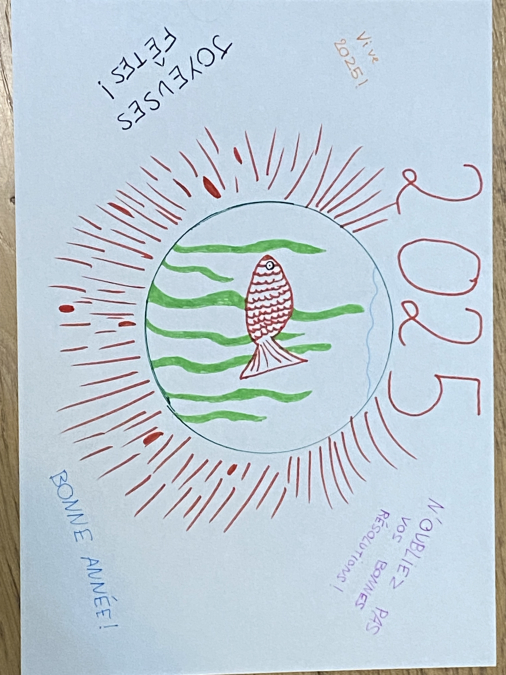 2025
Vive
2025!
N'OUBLIEZ PAS
VOS BONNES
RÉSOLUTIONS!
JOYEUSES
FÊTES!
BONNE ANNÉE!